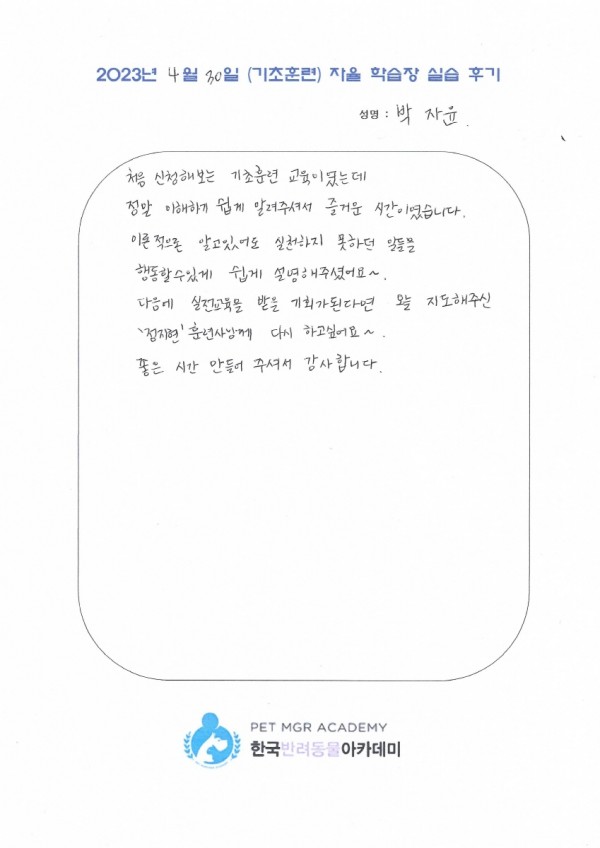 2023년 4월 30일 (기초훈련) 자율 학습장 실습 후기
성명 : 박 자윤
처음 신청해보는 기초훈련 교육이였는데
정말 이해하기 쉽게 알려주셔서 즐거운 시간이였습니다.
이론적으론 알고있어도 실천하지 못하던 일들을
행동할수있게 쉽게 설명해주셨어요~.
다음에 실전교육을 받을 기회가된다면 오늘 지도해주신
'정지현' 훈련사님께 다시 하고싶어요~.
좋은 시간 만들어 주셔서 감사합니다.
PET MGR ACADEMY
한국반려동물아카데미